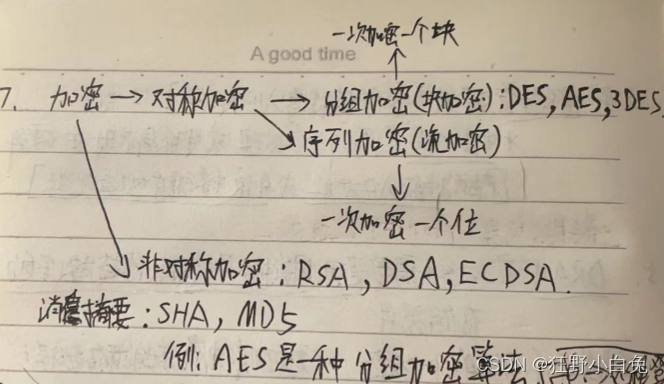 一次加密一个块
A good time
7. 加密 → 对称加密 → 分组加密(块加密):DES, AES, 3DES,
序列加密(流加密)
一次加密一个位
非对称加密:RSA, DSA, ECDSA.
消息摘要:SHA, MD5
例:AES是一种分组加密算法
CSDN @狂野小白兔